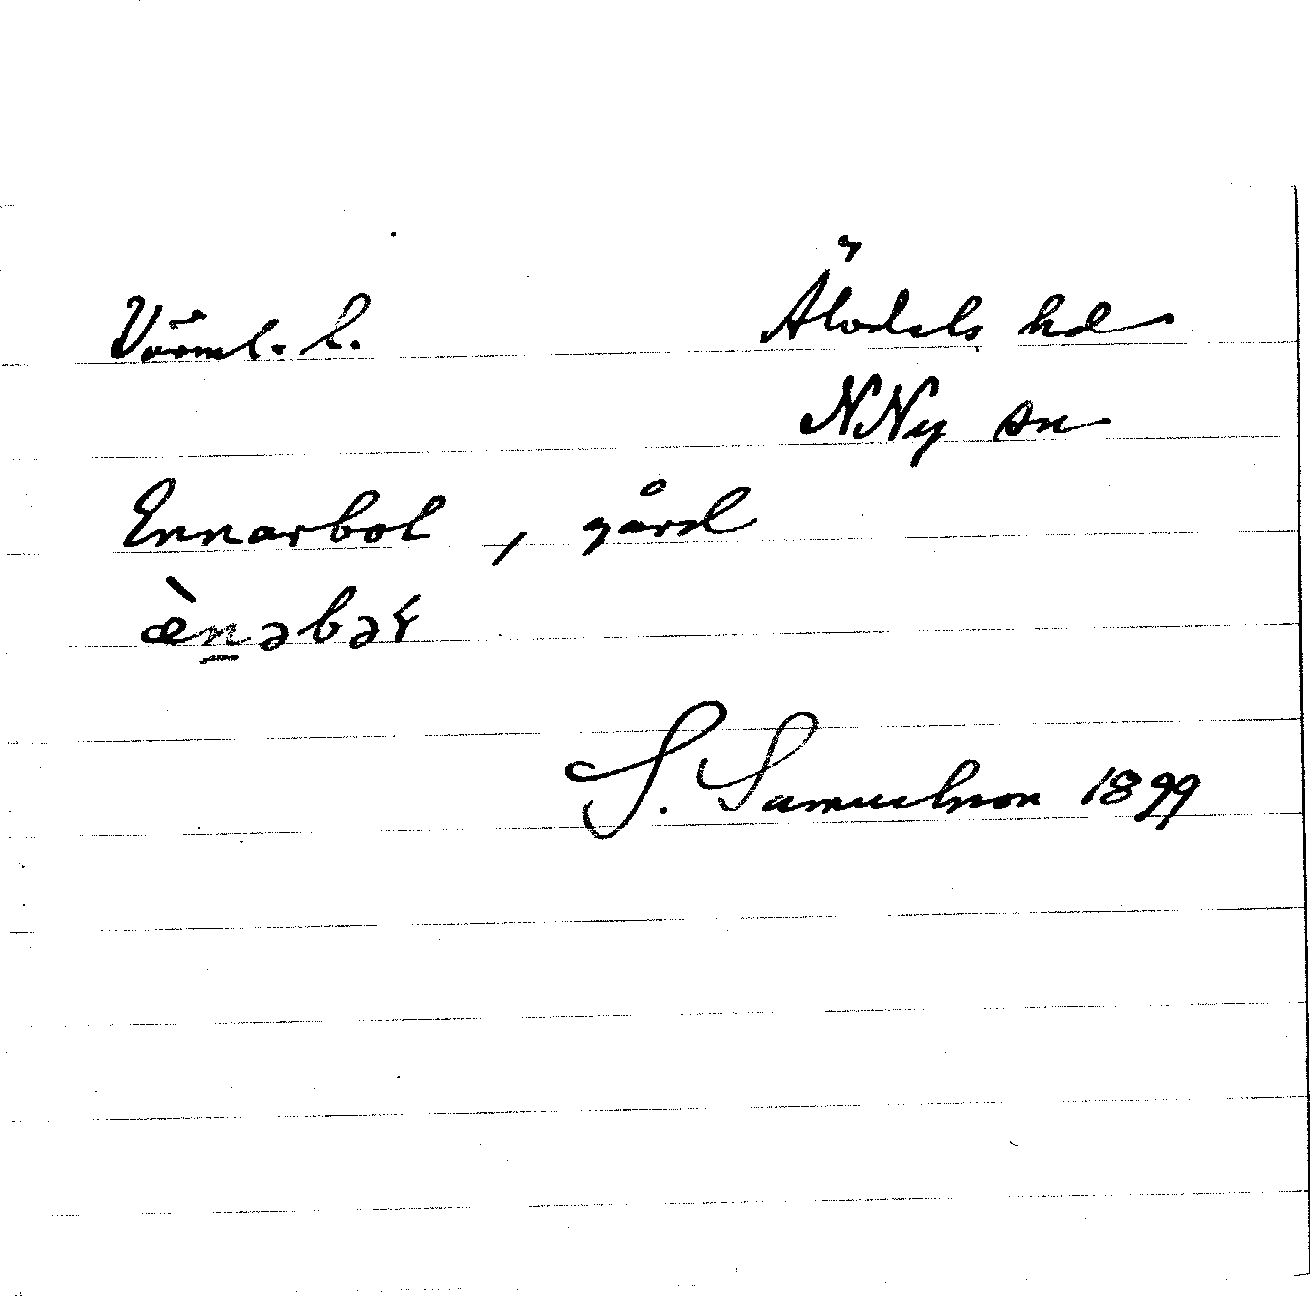 Värml. l. Älvdals hd
NNy sn
Ennarbol, gård
æ̀n̲əbəɬ
S. Samuelson 1899